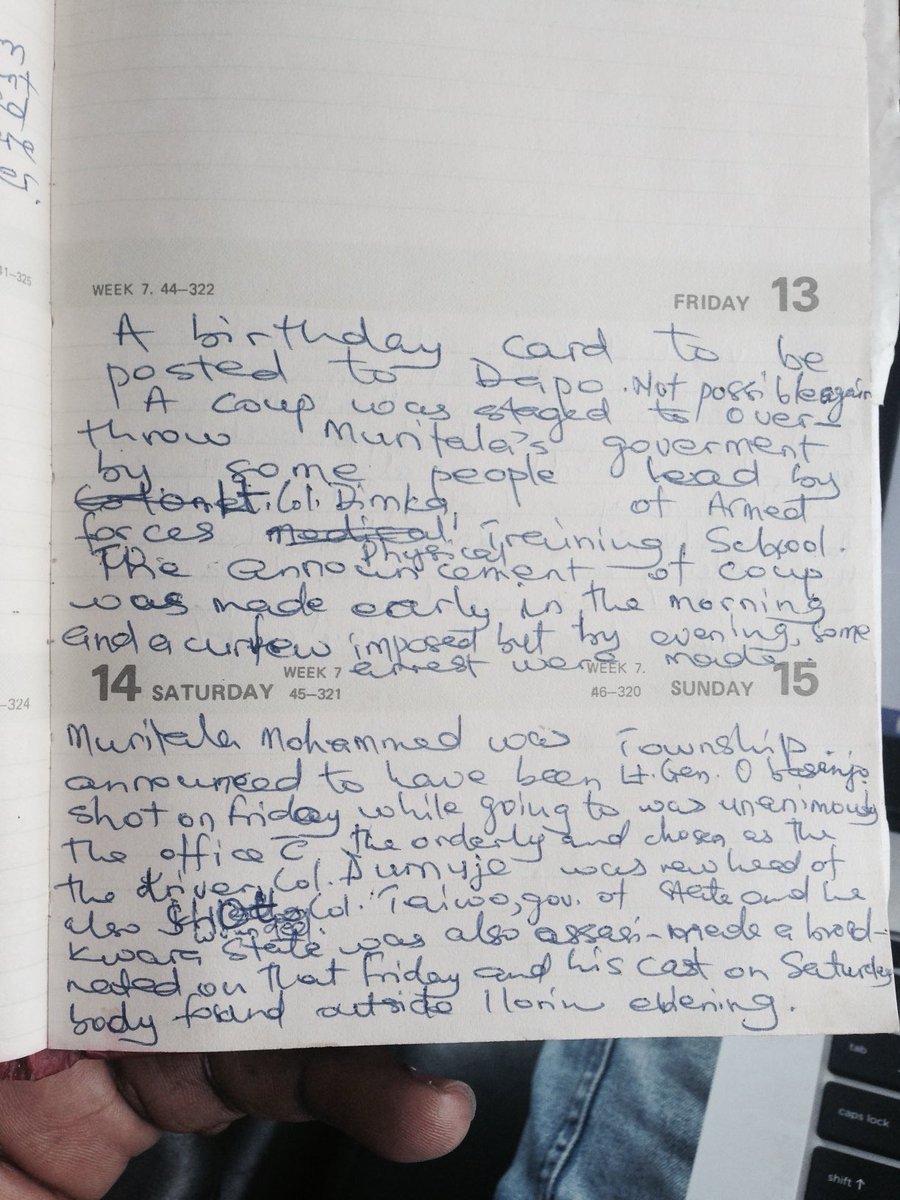 WEEK 7. 44–322
FRIDAY 13
A birthday card to be
posted to Dapo. Not possible again
A coup was staged to over-
throw Muritala's goverment
by some people lead by
Col. Dimka, of Armed
forces Physical Training School.
The announcement of coup
was made early in the morning
and a curfew imposed but by evening, some
arrest were made.
14 SATURDAY
WEEK 7
45–321
Muritala Mohammed was
announced to have been
shot on friday while going to
the office c̄ the orderly and
the driver. Col. Dumuje was
also Col. Taiwo, gov. of
Kwara State was also assasi-
nated on that friday and his
body found outside Ilorin
WEEK 7.
46–320
SUNDAY 15
Township.
Lt. Gen. Obasanjo
was unanimously
chosen as the
new head of
state and he
made a broad-
cast on Saturday
evening.
–324
tab
caps lock
shift